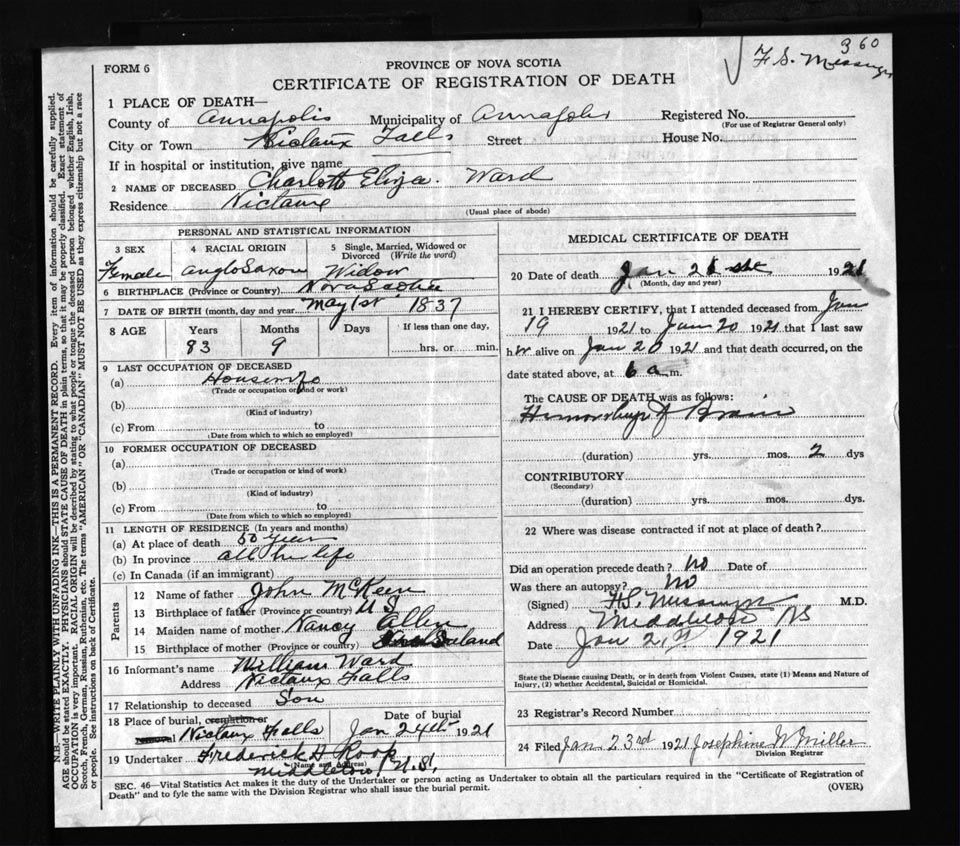 360
F. S. Messenger
FORM 6
PROVINCE OF NOVA SCOTIA
CERTIFICATE OF REGISTRATION OF DEATH
1 PLACE OF DEATH—
County of Annapolis Municipality of Annapolis Registered No.
(For use of Registrar General only)
City or Town Nictaux Falls Street House No.
If in hospital or institution, give name
2 NAME OF DECEASED Charlott Eliza. Ward
Residence Nictaux
(Usual place of abode)
PERSONAL AND STATISTICAL INFORMATION
3 SEX 4 RACIAL ORIGIN 5 Single, Married, Widowed or
Divorced (Write the word)
Female Anglo Saxon Widow
6 BIRTHPLACE (Province or Country) Nova Scotia
7 DATE OF BIRTH (month, day and year) May 1st 1837
8 AGE Years Months Days If less than one day,
83 9 hrs. or min.
9 LAST OCCUPATION OF DECEASED
(a) Housewife
(Trade or occupation or kind or work)
(b)
(Kind of industry)
(c) From to
(Date from which to which so employed)
10 FORMER OCCUPATION OF DECEASED
(a)
(Trade or occupation or kind of work)
(b)
(Kind of industry)
(c) From to
(Date from which to which so employed)
11 LENGTH OF RESIDENCE (In years and months)
(a) At place of death 50 years
(b) In province all her life
(c) In Canada (if an immigrant)
Parents
12 Name of father John McKeen
13 Birthplace of father (Province or country) U S
14 Maiden name of mother Nancy Allen
15 Birthplace of mother (Province or country)
16 Informant's name William Ward
Address Nictaux Falls
17 Relationship to deceased Son
18 Place of burial, cremation or Date of burial
removal Nictaux Falls Jan 24th 1921
19 Undertaker Frederick D Roop
(Name and Address)
Middleton N.S.
MEDICAL CERTIFICATE OF DEATH
20 Date of death Jan 21 st 1921
(Month, day and year)
21 I HEREBY CERTIFY, that I attended deceased from Jan
19 1921 to Jan 20 1921 that I last saw
her alive on Jan 20 1921 and that death occurred, on the
date stated above, at 6 a m.
The CAUSE OF DEATH was as follows:
Hemorrhage of Brain
(duration) yrs. mos. 2 dys
CONTRIBUTORY
(Secondary)
(duration) yrs. mos. dys.
22 Where was disease contracted if not at place of death?
Did an operation precede death? No Date of
Was there an autopsy? No
(Signed) F.S. Messenger M.D.
Address Middleton NS
Date Jan 21 1921
State the Disease causing Death, or in death from Violent Causes, state (1) Means and Nature of
Injury, (2) whether Accidental, Suicidal or Homicidal.
23 Registrar's Record Number
24 Filed Jan 23rd 1921 Josephine W Miller
Division Registrar
SEC. 46—Vital Statistics Act makes it the duty of the Undertaker or person acting as Undertaker to obtain all the particulars required in the "Certificate of Registration of
Death" and to fyle the same with the Division Registrar who shall issue the burial permit.
(OVER)
N.B.—WRITE PLAINLY WITH UNFADING INK—THIS IS A PERMANENT RECORD. Every item of information should be carefully supplied.
AGE should be stated EXACTLY. PHYSICIANS should STATE CAUSE OF DEATH in plain terms, so that it may be properly classified. Exact statement of
OCCUPATION is very important. RACIAL ORIGIN will be described by stating to what people or tongue the deceased person belonged whether English, Irish,
Scotch, French, German, Russian, Ruthenian, etc. The terms "AMERICAN" OR "CANADIAN" MUST NOT BE USED as they express citizenship but not a race
or people. See instructions on back of Certificate.